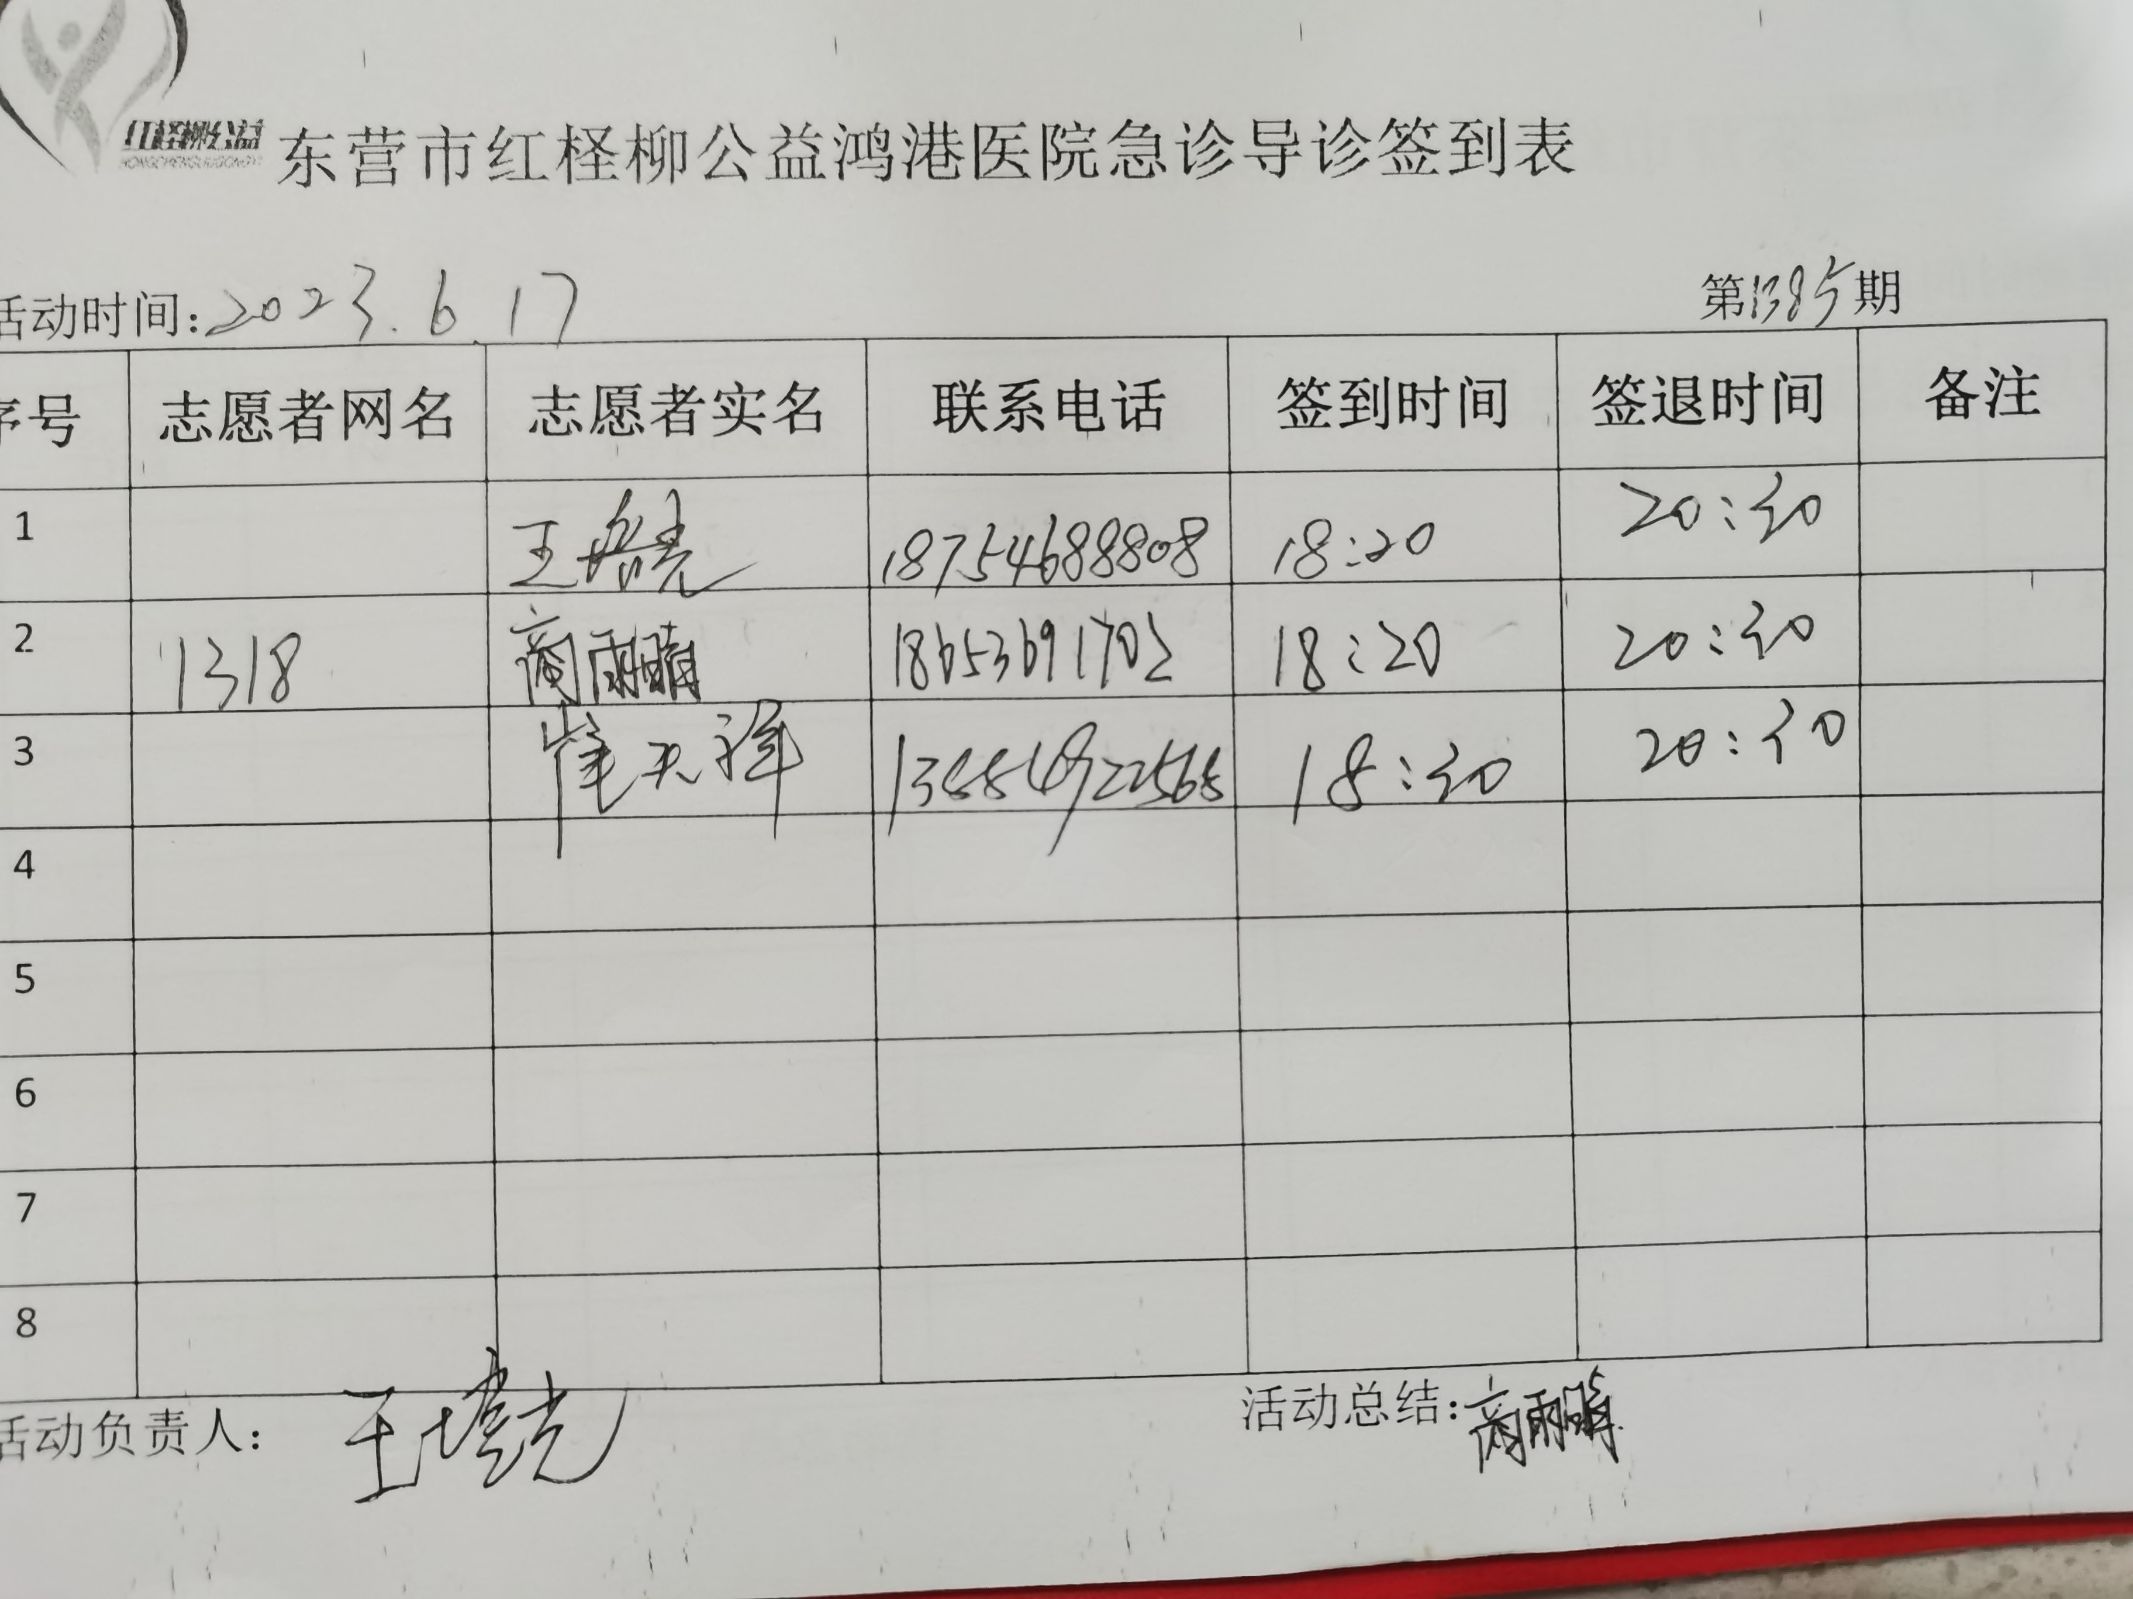 红柽柳公益
HONGCHENGLIUGONGYI
东营市红柽柳公益鸿港医院急诊导诊签到表
活动时间:2023.6.17 第1385期
序号 志愿者网名 志愿者实名 联系电话 签到时间 签退时间 备注
1 王 18754688808 18:20 20:30
2 1318 商雨晴 18653691702 18:20 20:30
3 崔天祥 18:30 20:30
4
5
6
7
8
活动负责人: 王 活动总结:商雨晴